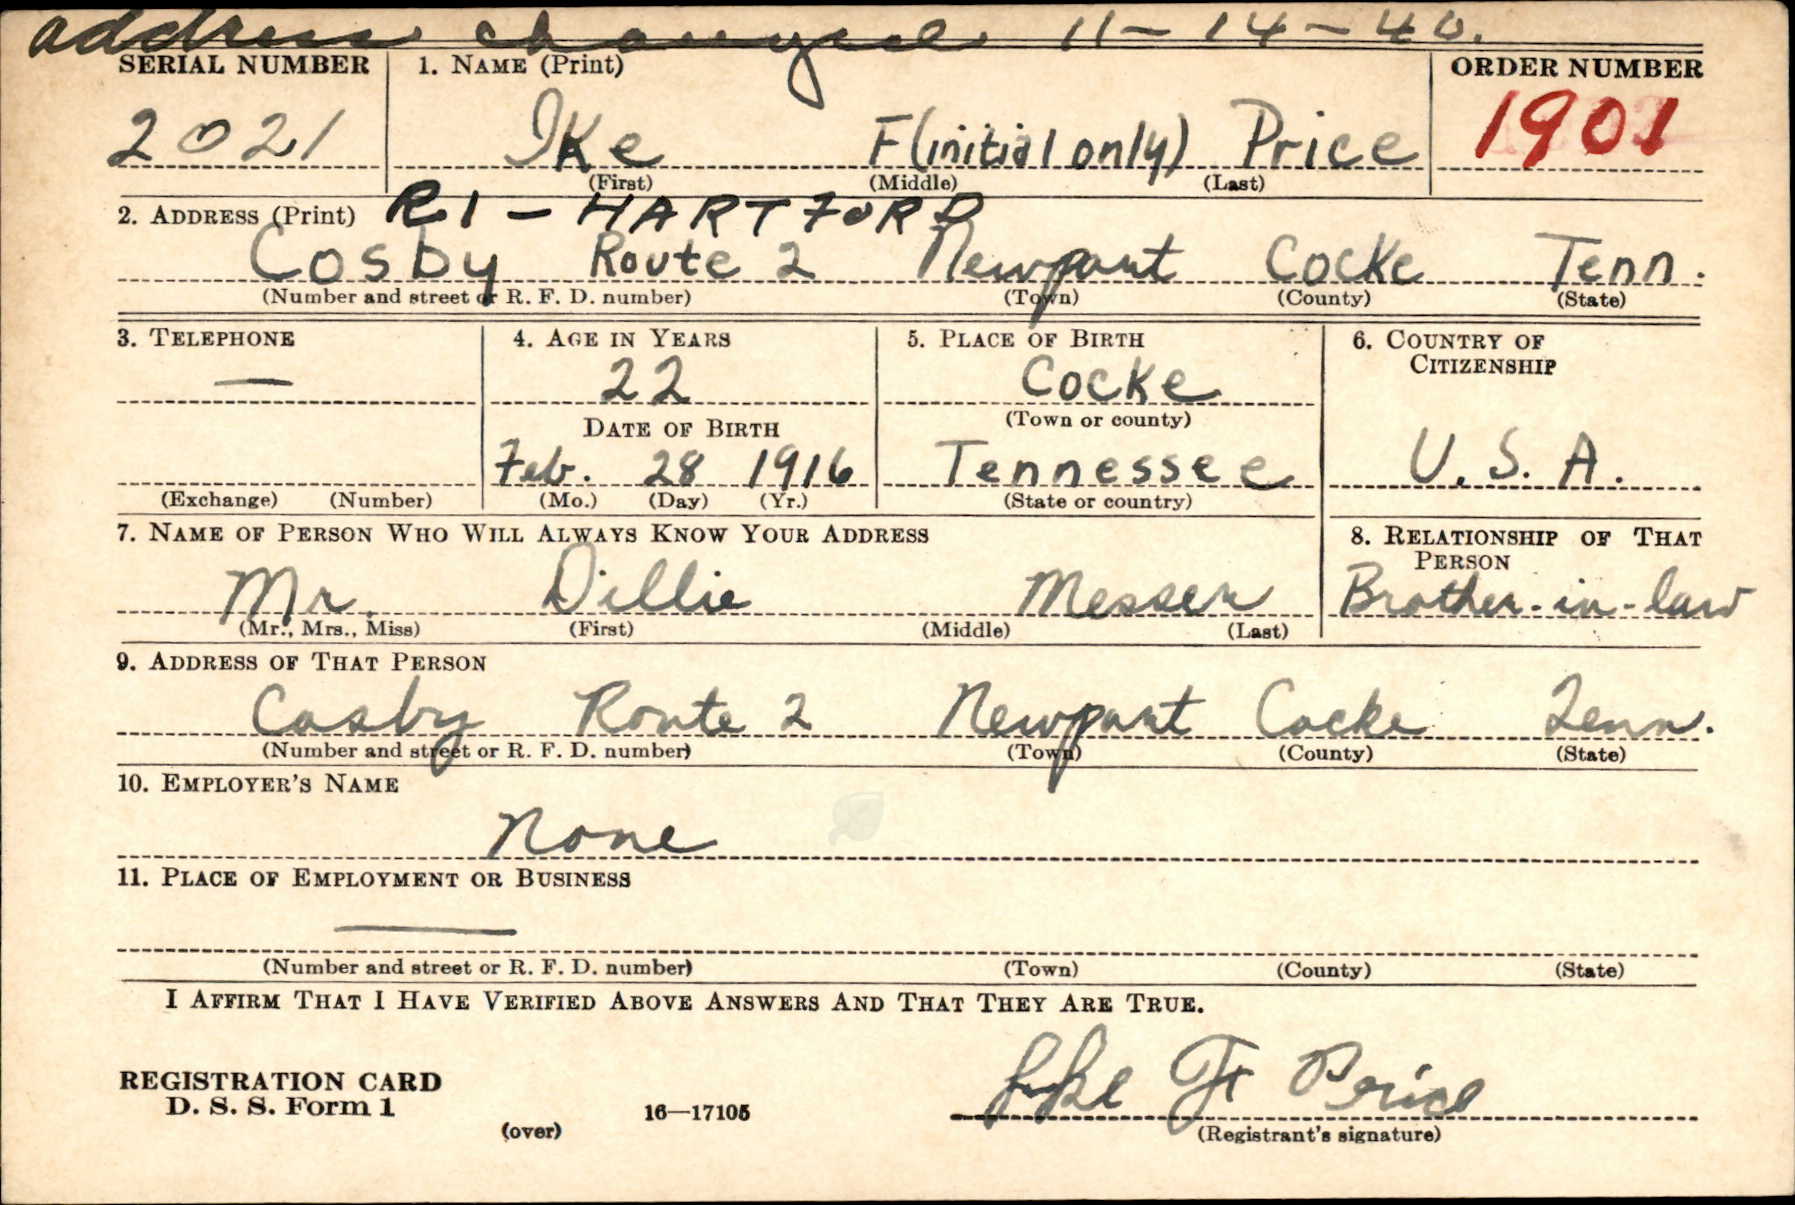 address changed 11-14-40.
SERIAL NUMBER 1. NAME (Print) ORDER NUMBER
2021 Ike F(initial only) Price 1901
(First) (Middle) (Last)
2. ADDRESS (Print) R1 - HARTFORD
Cosby Route 2 Newport Cocke Tenn.
(Number and street or R. F. D. number) (Town) (County) (State)
3. TELEPHONE 4. AGE IN YEARS 5. PLACE OF BIRTH 6. COUNTRY OF
CITIZENSHIP
— 22 Cocke
(Town or county)
DATE OF BIRTH
Feb. 28 1916 Tennessee U.S.A.
(Exchange) (Number) (Mo.) (Day) (Yr.) (State or country)
7. NAME OF PERSON WHO WILL ALWAYS KNOW YOUR ADDRESS 8. RELATIONSHIP OF THAT
PERSON
Mr. Dillie Messer Brother-in-law
(Mr., Mrs., Miss) (First) (Middle) (Last)
9. ADDRESS OF THAT PERSON
Cosby Route 2 Newport Cocke Tenn.
(Number and street or R. F. D. number) (Town) (County) (State)
10. EMPLOYER'S NAME
None
11. PLACE OF EMPLOYMENT OR BUSINESS
—
(Number and street or R. F. D. number) (Town) (County) (State)
I AFFIRM THAT I HAVE VERIFIED ABOVE ANSWERS AND THAT THEY ARE TRUE.
REGISTRATION CARD
D. S. S. Form 1 Ike F Price
(over) 16—17105 (Registrant's signature)